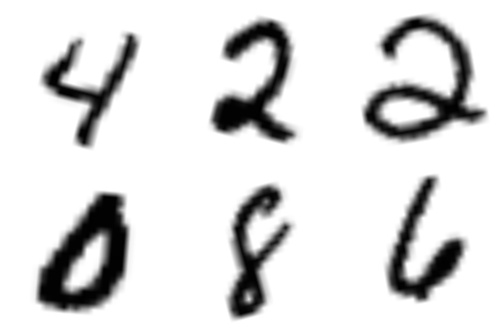 4 2 2
0 8 6